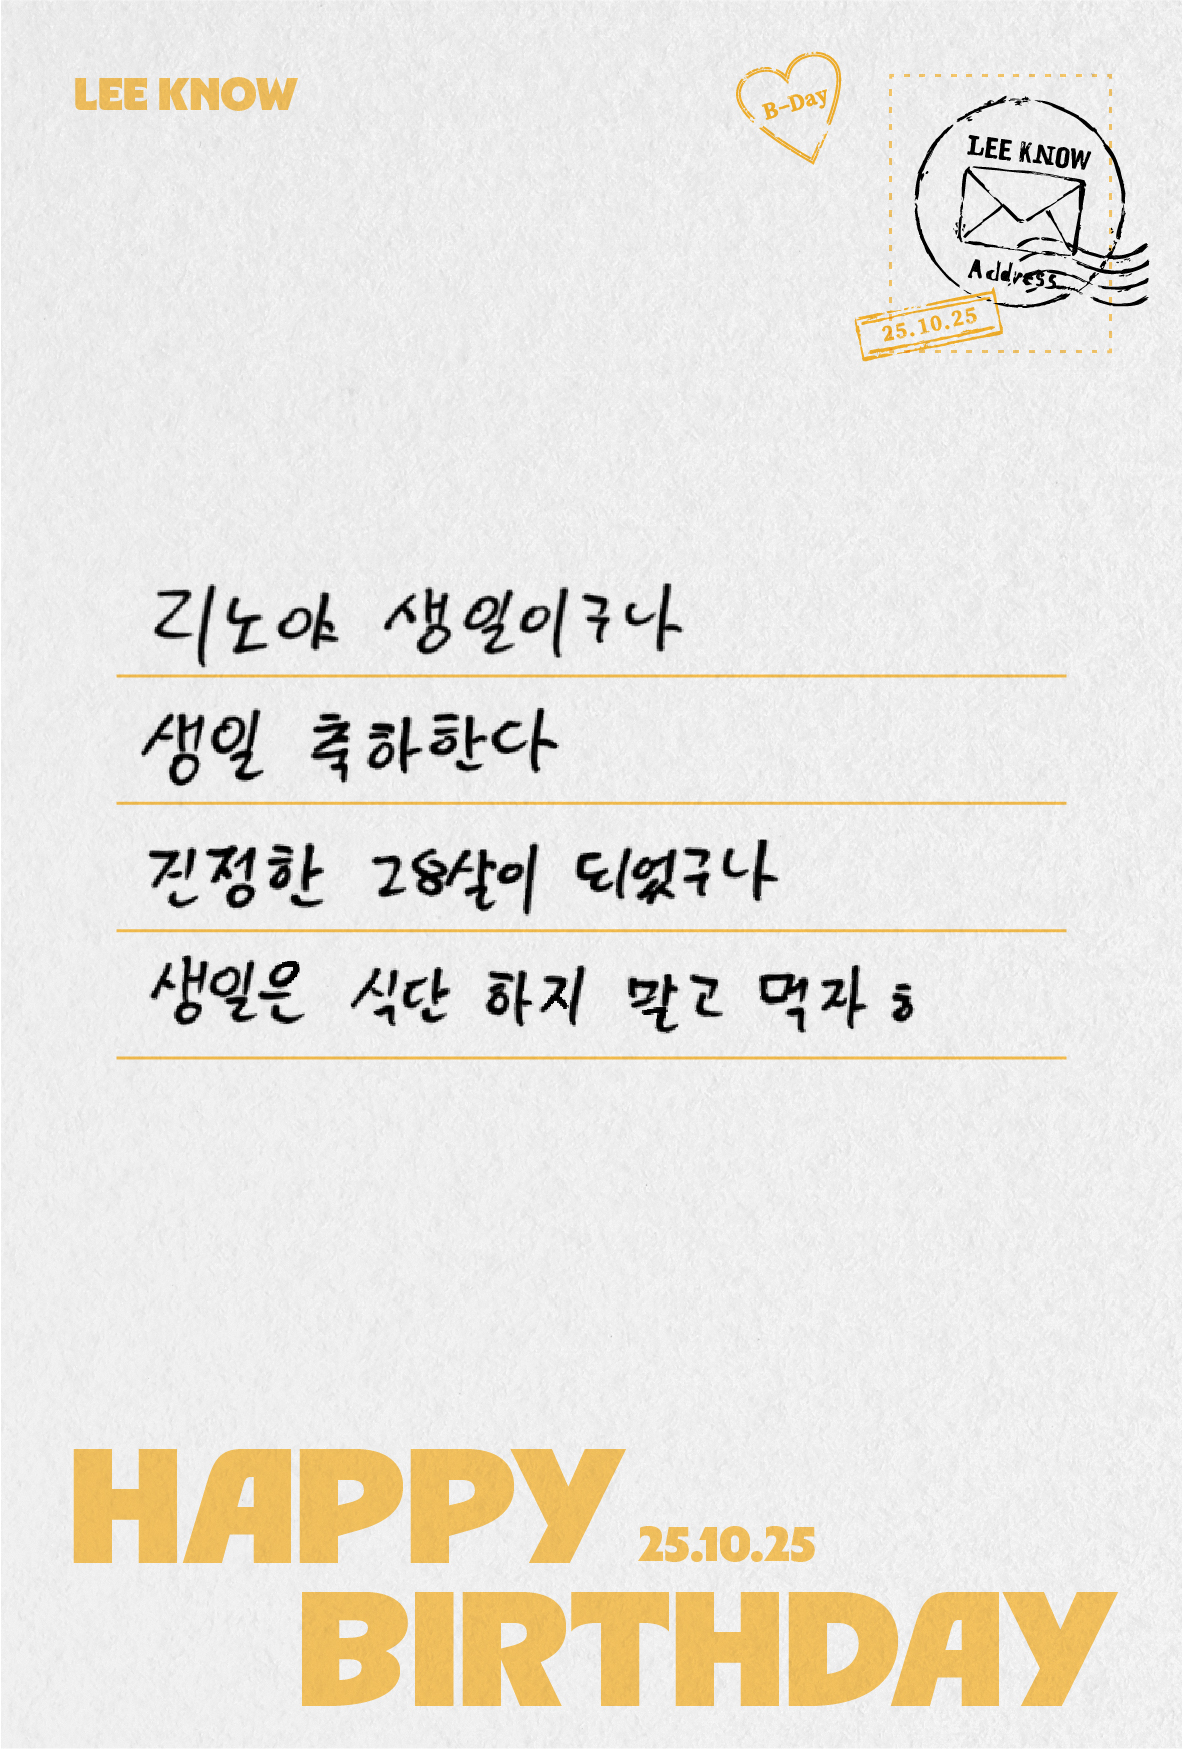 LEE KNOW
B-Day
LEE KNOW
Address
25.10.25
리노야 생일이구나
생일 축하한다
진정한 28살이 되었구나
생일은 식단 하지 말고 먹자 ㅎ
HAPPY
25.10.25
BIRTHDAY